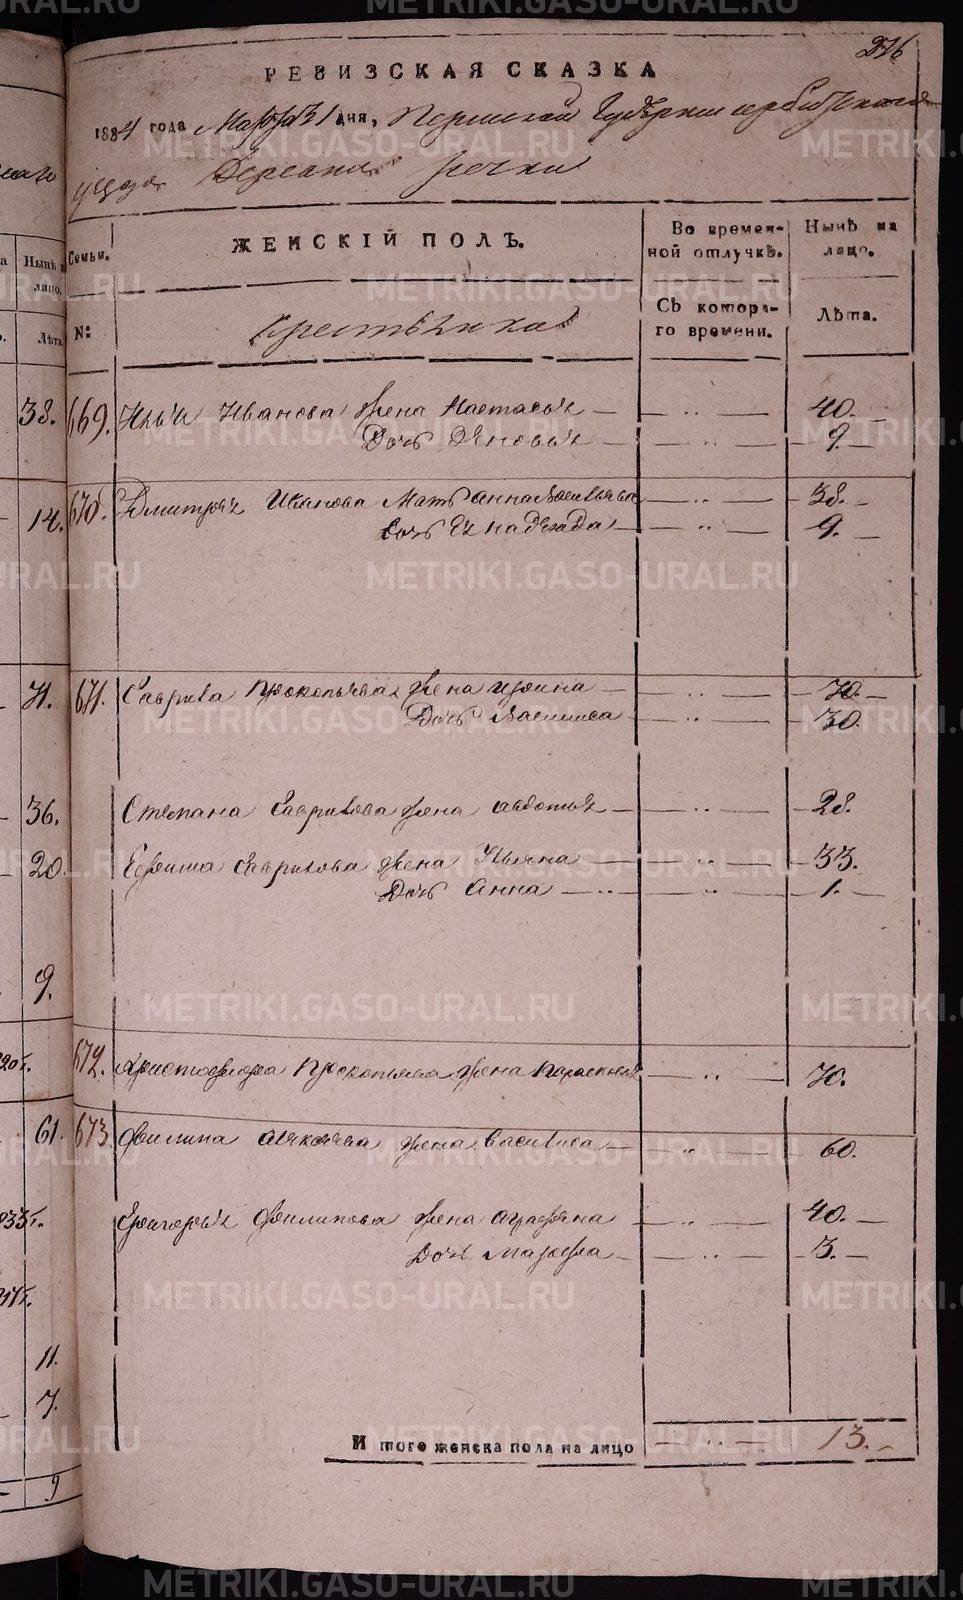 276
РЕВИЗСКАЯ СКАЗКА
1834 года Марта 31 дня, Пермской Губернии Ирбитскаго
уезда Деревни Речки
Семьи.
ЖЕНСКІЙ ПОЛЪ.
Во времен-
ной отлучкѣ.
Нынѣ на
лицо.
№:
Крестьянка
Съ котора-
го времени.
Лѣта.
669. Ильи Иванова жена Настасья — „ — 40.
Дочь Зиновья — „ — 9.
670. Дмитрея Иванова Мать Анна Васильева — „ — 38.
Дочь Ея надежда — „ — 9.
671. Гаврила Прокопьева жена Ирина — „ — 70.
Дочь Василиса — „ — 30.
Степана Гаврилова жена Авдотья — „ — 28.
Ефима Гаврилова жена — „ — 33.
Дочь Анна — „ — 1.
672. Христофора Прокопьева жена Парасковья — „ — 70.
673 Филипа жена Василиса — „ — 60.
Григорья Филипова жена Аграфена — „ — 40.
Дочь — „ — 3.
Итого женска пола на лицо — „ — 13.
Нынѣ
лицо.
Лѣта
38.
14.
71.
36.
20.
9.
61.
11.
7.
9
METRIKI.GASO-URAL.RU